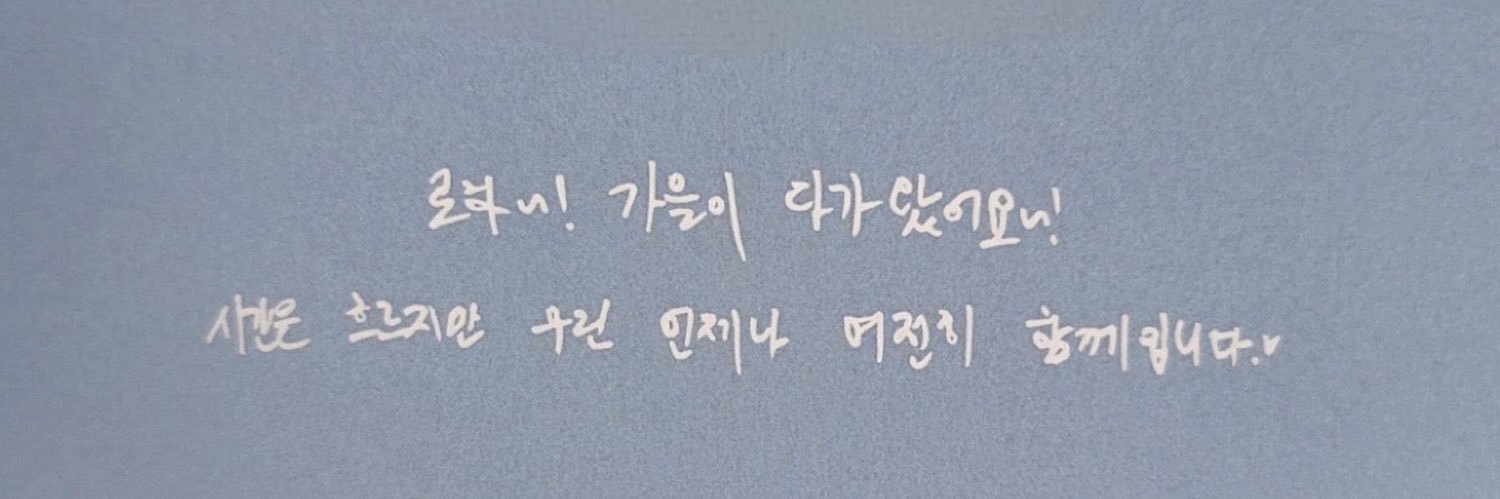 로하~! 가을이 다가왔어요~!
시간은 흐르지만 우린 언제나 여전히 함께입니다.♥